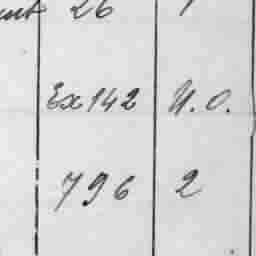 26
Ex 142 U.O.
796 2